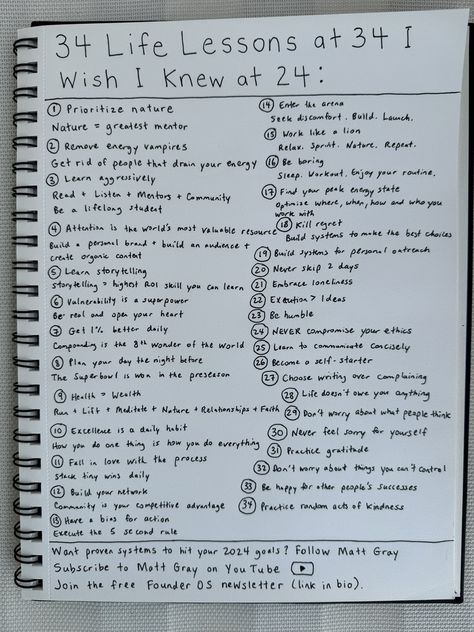 34 Life Lessons at 34 I
Wish I Knew at 24:
1 Prioritize nature
Nature = greatest mentor
2 Remove energy vampires
Get rid of people that drain your energy
3 Learn aggressively
Read + Listen + Mentors + Community
Be a lifelong student
4 Attention is the world's most valuable resource
Build a personal brand + build an audience +
create organic content
5 Learn storytelling
Storytelling = highest ROI skill you can learn
6 Vulnerability is a superpower
Be real and open your heart
7 Get 1% better daily
Compounding is the 8th wonder of the world
8 Plan your day the night before
The Superbowl is won in the preseason
9 Health = Wealth
Run + Lift + Meditate + Nature + Relationships + Faith
10 Excellence is a daily habit
How you do one thing is how you do everything
11 Fall in love with the process
Stack tiny wins daily
12 Build your network
Community is your competitive advantage
13 Have a bias for action
Execute the 5 second rule
14 Enter the arena
Seek discomfort. Build. Launch.
15 Work like a lion
Relax. Sprint. Nature. Repeat.
16 Be boring
Sleep. Workout. Enjoy your routine.
17 Find your peak energy state
Optimize where, when, how and who you
work with
18 Kill regret
Build systems to make the best choices
19 Build systems for personal outreach
20 Never skip 2 days
21 Embrace loneliness
22 Execution > Ideas
23 Be humble
24 NEVER compromise your ethics
25 Learn to communicate concisely
26 Become a self-starter
27 Choose writing over complaining
28 Life doesn't owe you anything
29 Don't worry about what people think
30 Never feel sorry for yourself
31 Practice gratitude
32 Don't worry about things you can't control
33 Be happy for other people's successes
34 Practice random acts of kindness
Want proven systems to hit your 2024 goals? Follow Matt Gray
Subscribe to Matt Gray on YouTube
Join the free Founder OS newsletter (link in bio).